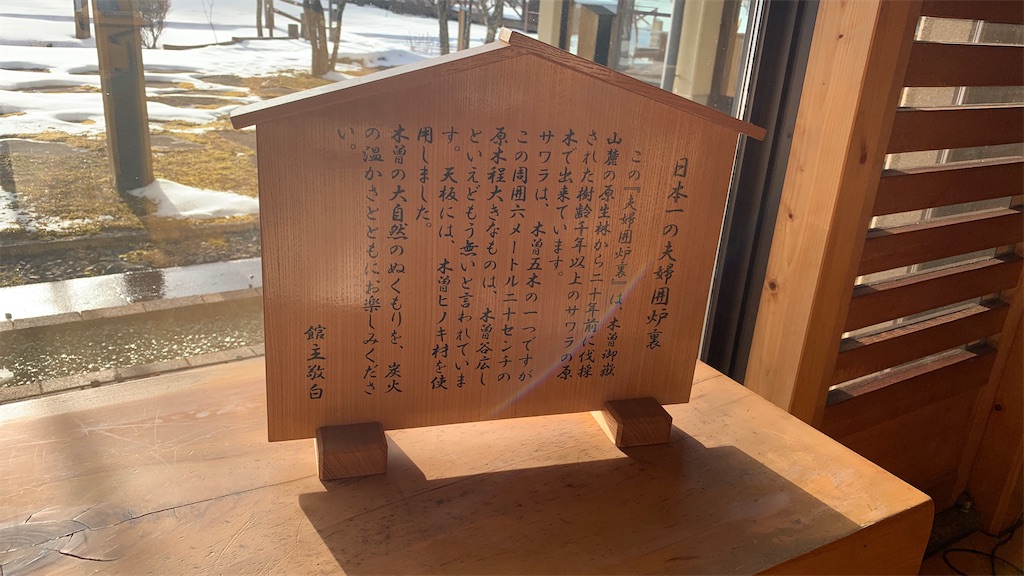 日本一の夫婦囲炉裏
この『夫婦囲炉裏』は、木曽御嶽
山麓の原生林から二十年前に伐採
された樹齢千年以上のサワラの原
木で出来ています。
サワラは、木曽五木の一つですが
この周囲六メートル二十センチの
原木程大きなものは、木曽谷広し
といえどもう無いと言われていま
す。天板には、木曽ヒノキ材を使
用しました。
木曽の大自然のぬくもりを、炭火
の温かさとともにお楽しみくださ
い。
館主敬白